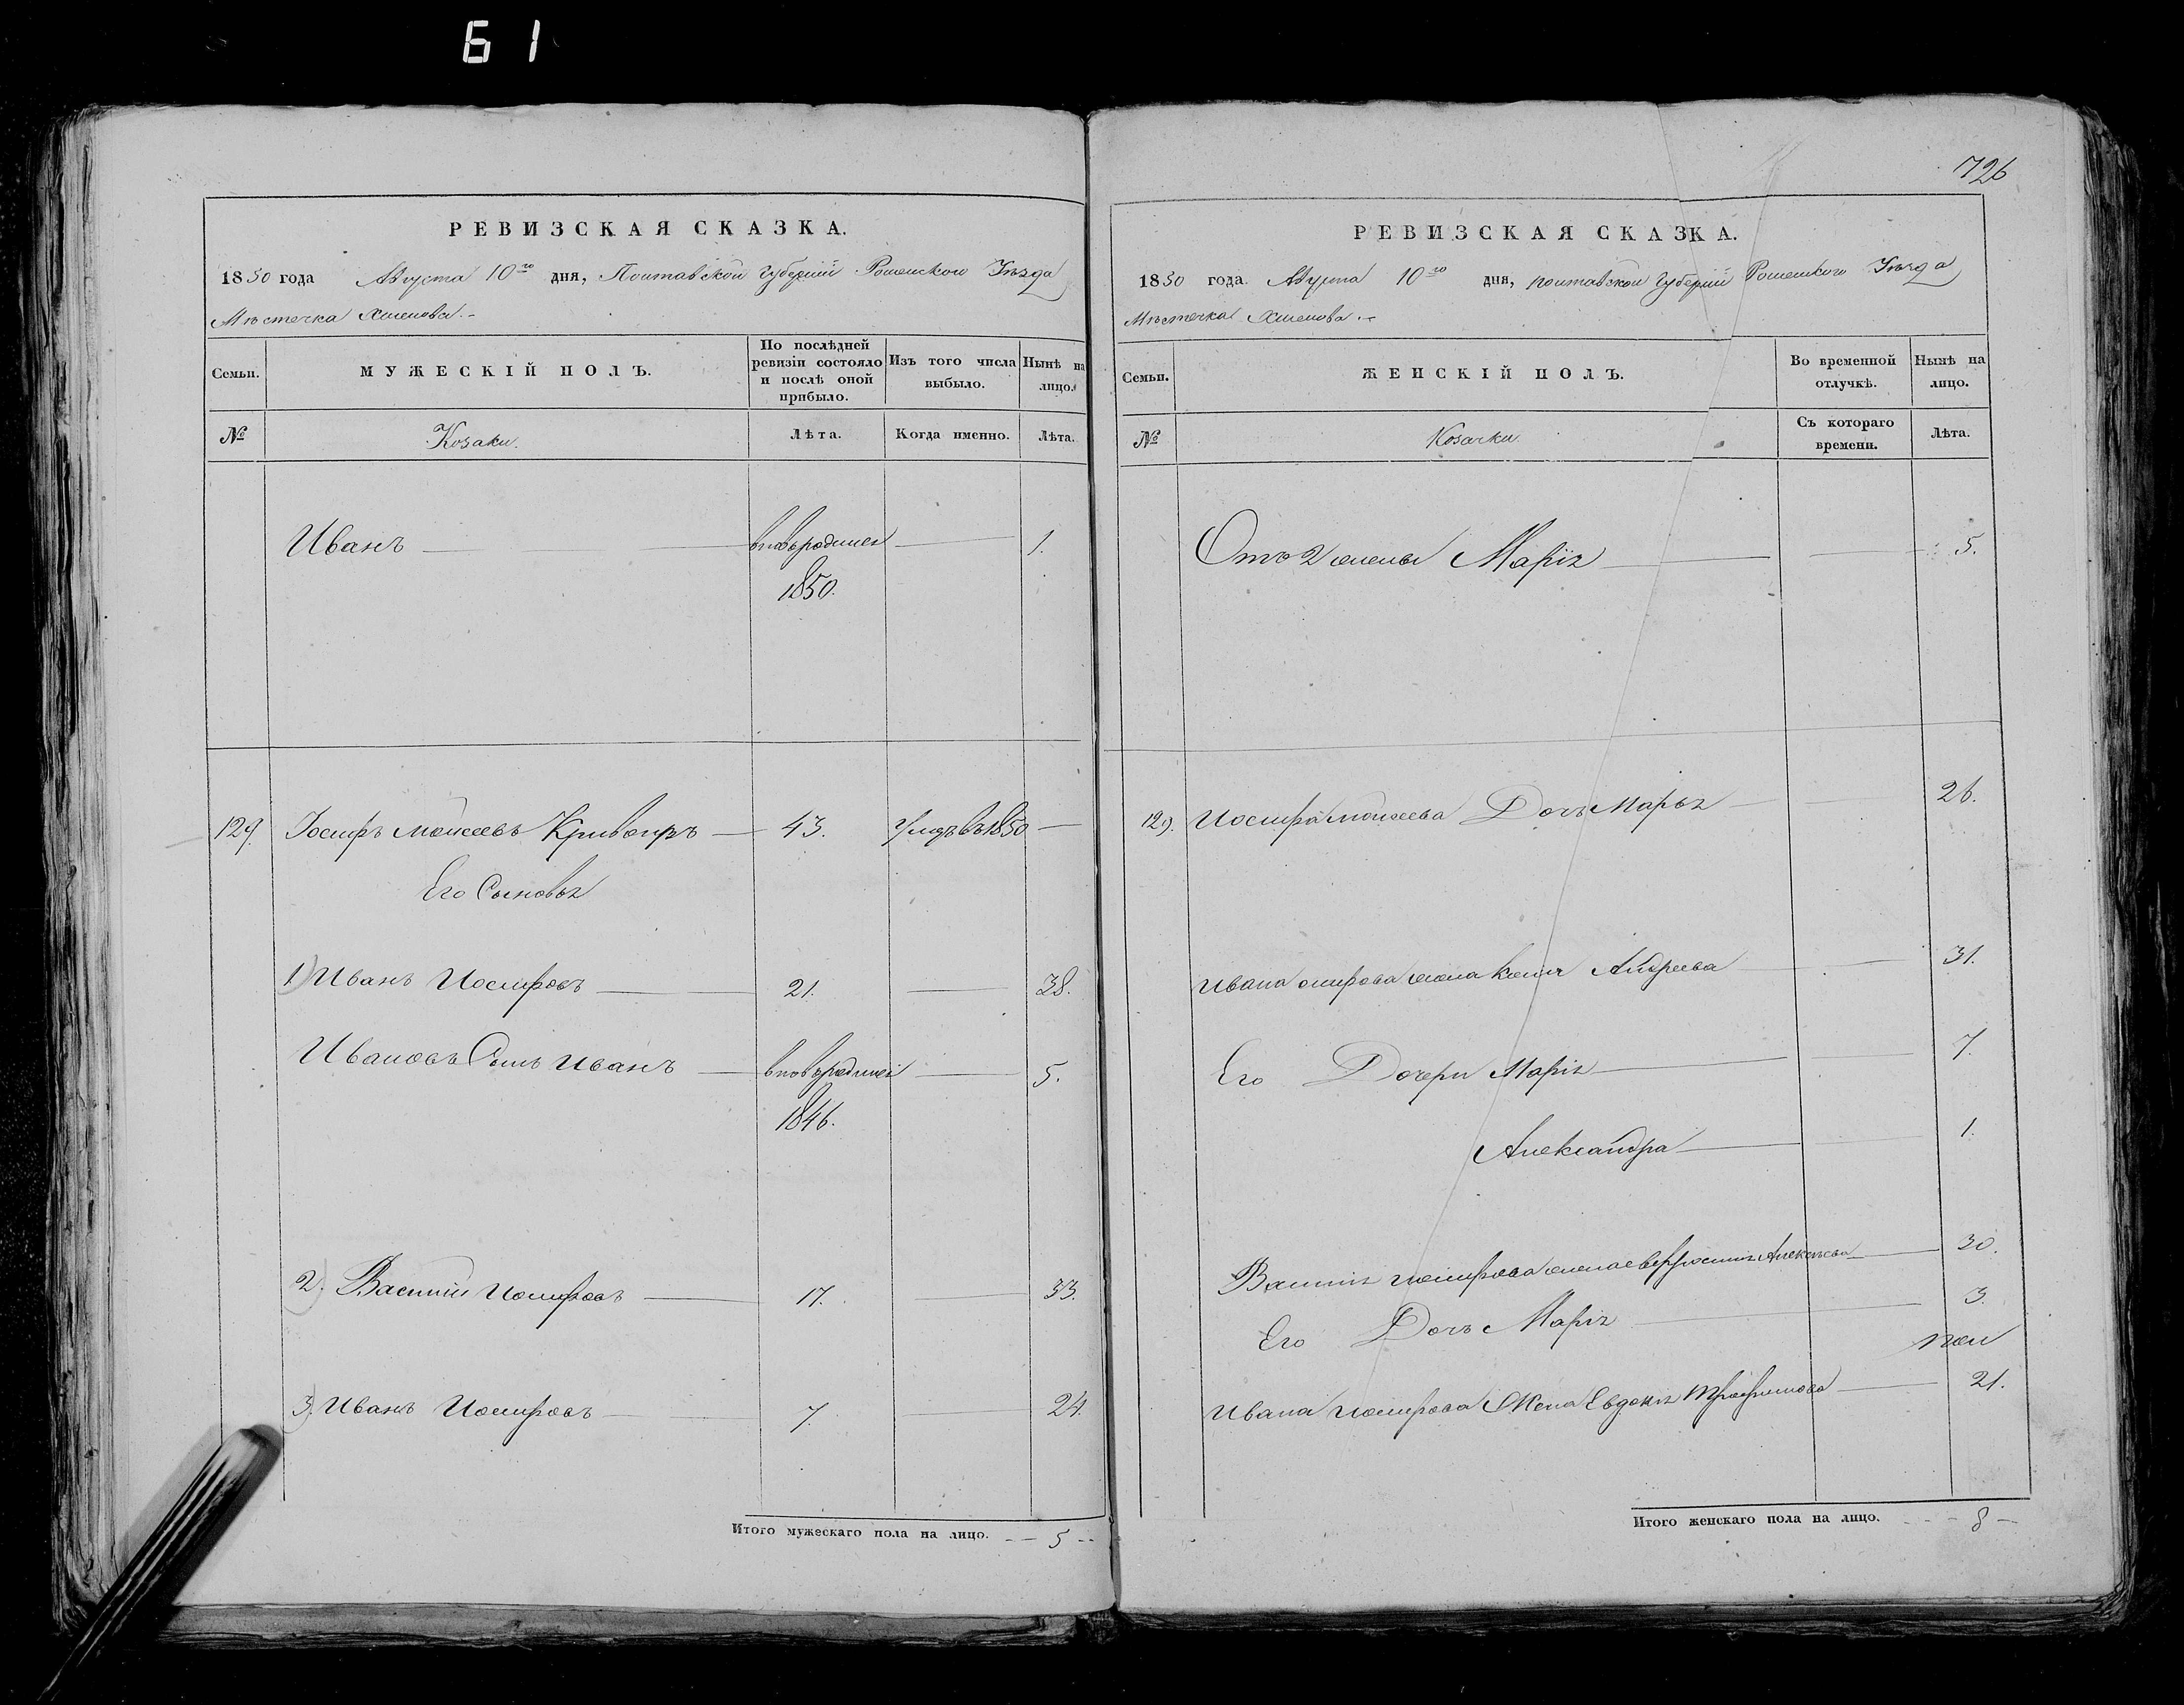 61
РЕВИЗСКАЯ СКАЗКА.
1850 года Августа 10го дня, Полтавской Губернiи Роменскаго Уѣзда
Мѣстечка Хмелова.-
Семьи. МУЖЕСКIЙ ПОЛЪ. По послѣдней ревизiи состояло и послѣ оной прибыло. Изъ того числа выбыло. Нынѣ на лицо.
№ Козаки. Лѣта. Когда именно. Лѣта.
Иванъ вновьродился 1.
1850.
129. Iосифъ Моисеевъ 43. Умеръ въ 1850
Его Сыновья
1) Иванъ Иосифовъ 21. 38.
Ивановъ Сынъ Иванъ вновьродился 5.
1846.
2) Василiй Иосифовъ 17. 33.
3) Иванъ Иосифовъ 7. 24.
Итого мужескаго пола на лицо. 5
726
РЕВИЗСКАЯ СКАЗКА.
1850 года. Августа 10го дня, полтавской Губернiи Роменского Уѣзда
Мѣстечка Хмелова.-
Семьи. ЖЕНСКIЙ ПОЛЪ. Во временной отлучкѣ. Нынѣ на лицо.
№ Козачки Съ котораго времени. Лѣта.
Отъ 2 жены Марiя 5.
129. Иосифа Моисеева Дочь Марья 26.
Ивана осифова жена Андреева 31.
Его Дочери Марiя 7.
Александра 1.
Василiя иосифова жена Алексѣева 30.
Его Дочь Марiя 3.
Ивана иосифова Жена Евдокiя Трофимова 21.
Итого женскаго пола на лицо. 8